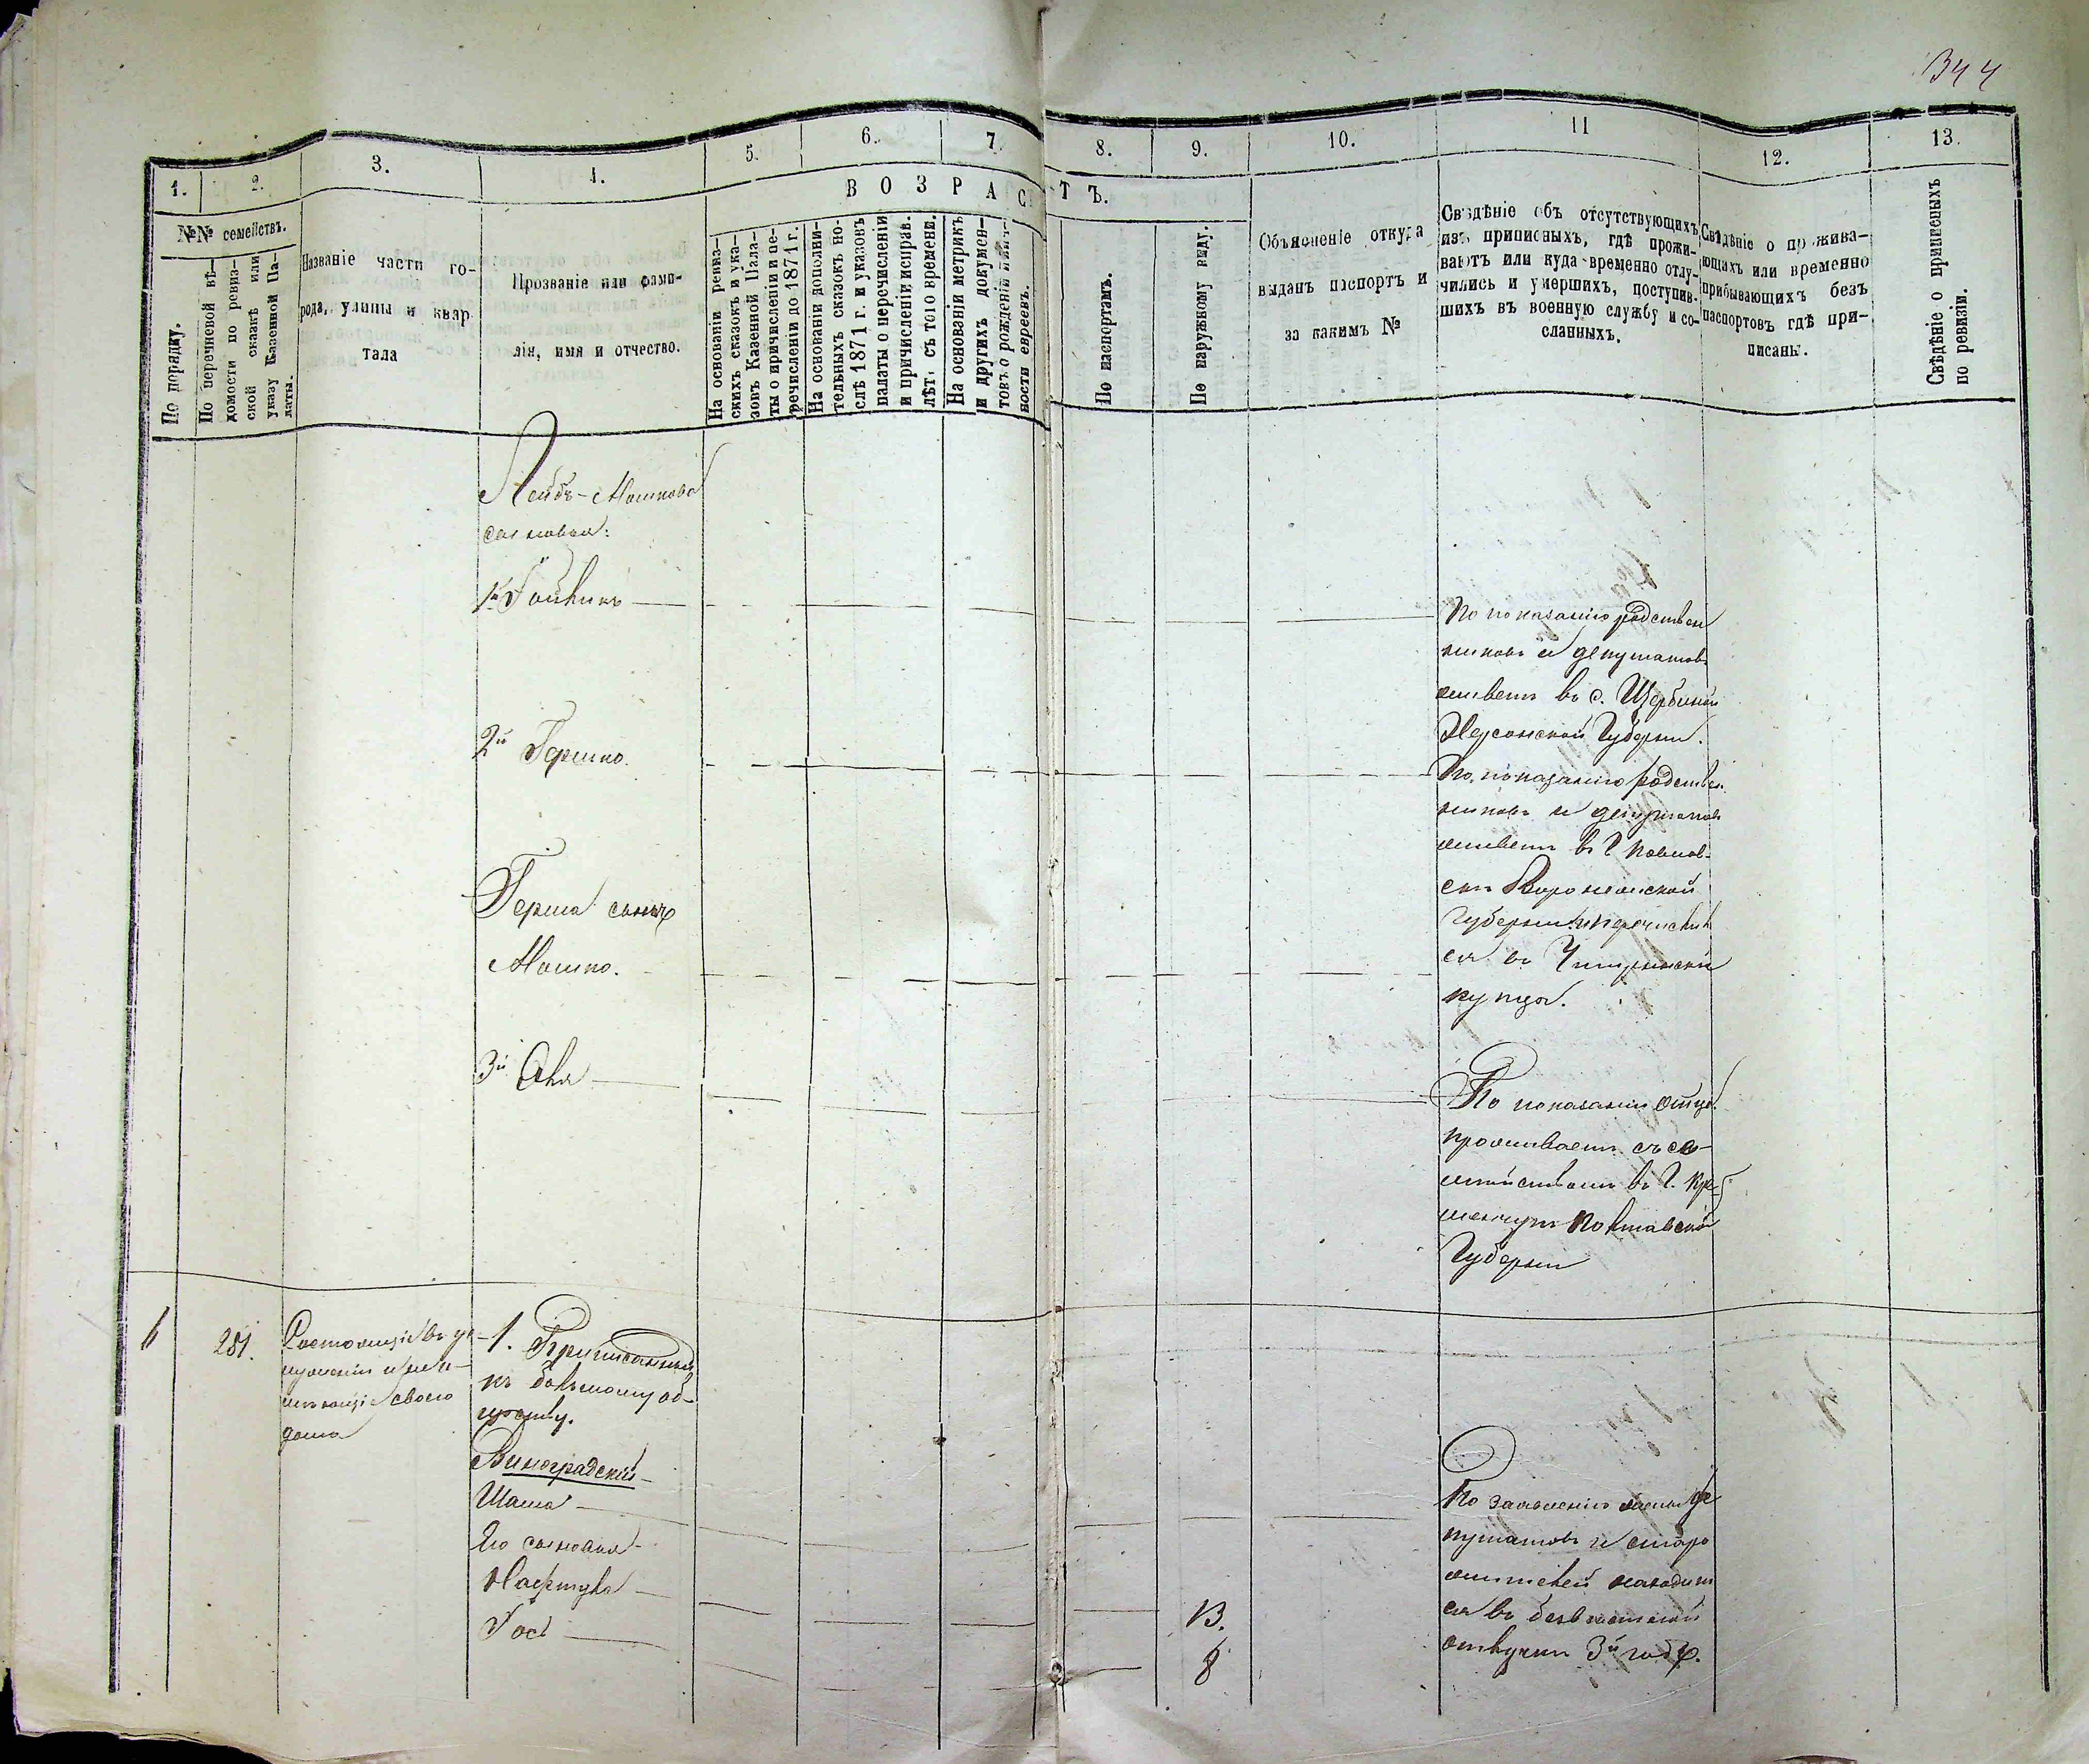 344
1.
2.
3.
4.
5.
6.
7.
8.
9.
10.
11
12.
13.
№№ семействъ.
По порядку.
По перечневой вѣ-
домости по ревиз-
ской сказкѣ или
указу Казенной Па-
латы.
Названіе части го-
рода, улицы и квар-
тала
Прозваніе или фами-
лія, имя и отчество.
ВОЗРАСТЪ.
На основаніи ревиз-
скихъ сказокъ и ука-
зовъ Казенной Пала-
ты о причисленіи и пе-
речисленіи до 1871 г.
На основаніи дополни-
тельныхъ сказокъ по-
слѣ 1871 г. и указовъ
палаты о перечисленіи
и причисленіи, исправ.
лѣт. съ того времени.
На основаніи метрикъ
и другихъ докумен-
товъ о рожденіи
ности евреевъ.
По паспортамъ.
По наружному виду.
Объясненіе откуда
выданъ паспортъ и
за какимъ №
Свѣдѣніе объ отсутствующихъ
изъ приписныхъ, гдѣ прожи-
ваютъ или куда временно отлу-
чились и умершихъ, поступив-
шихъ въ военную службу и со-
сланныхъ.
Свѣдѣніе о прожива-
ющихъ или временно
прибывающихъ безъ
паспортовъ гдѣ при-
писаны.
Свѣдѣніе о приписныхъ
по ревизіи.
Лейбъ-Мошкова
сыновья:
1й
По показанію родствен
никовъ и депутатовъ
живетъ въ с. Щербиной
Херсонской Губерни.
2й Гершко.
По показанію родствен
никовъ и депутатовъ
живетъ въ г. Павлов-
скѣ Воронежской
Губерніи и перечислил
ся въ Чигиринскіе
купцы.
Герша сынъ
Мошко.
3й
По показанію отца
проживаетъ съ се-
мействомъ въ г. Кре-
менчугѣ Полтавской
Губерніи
6
281.
своего
дома
1. Приписанный
къ большому об-
ществу.
Виноградскій
Шая
Его сыновья
Нафтула
13.
8
По заявленію де
путатовъ и старо
жителей находит
ся въ безвѣстной
отлучкѣ 3й годъ.